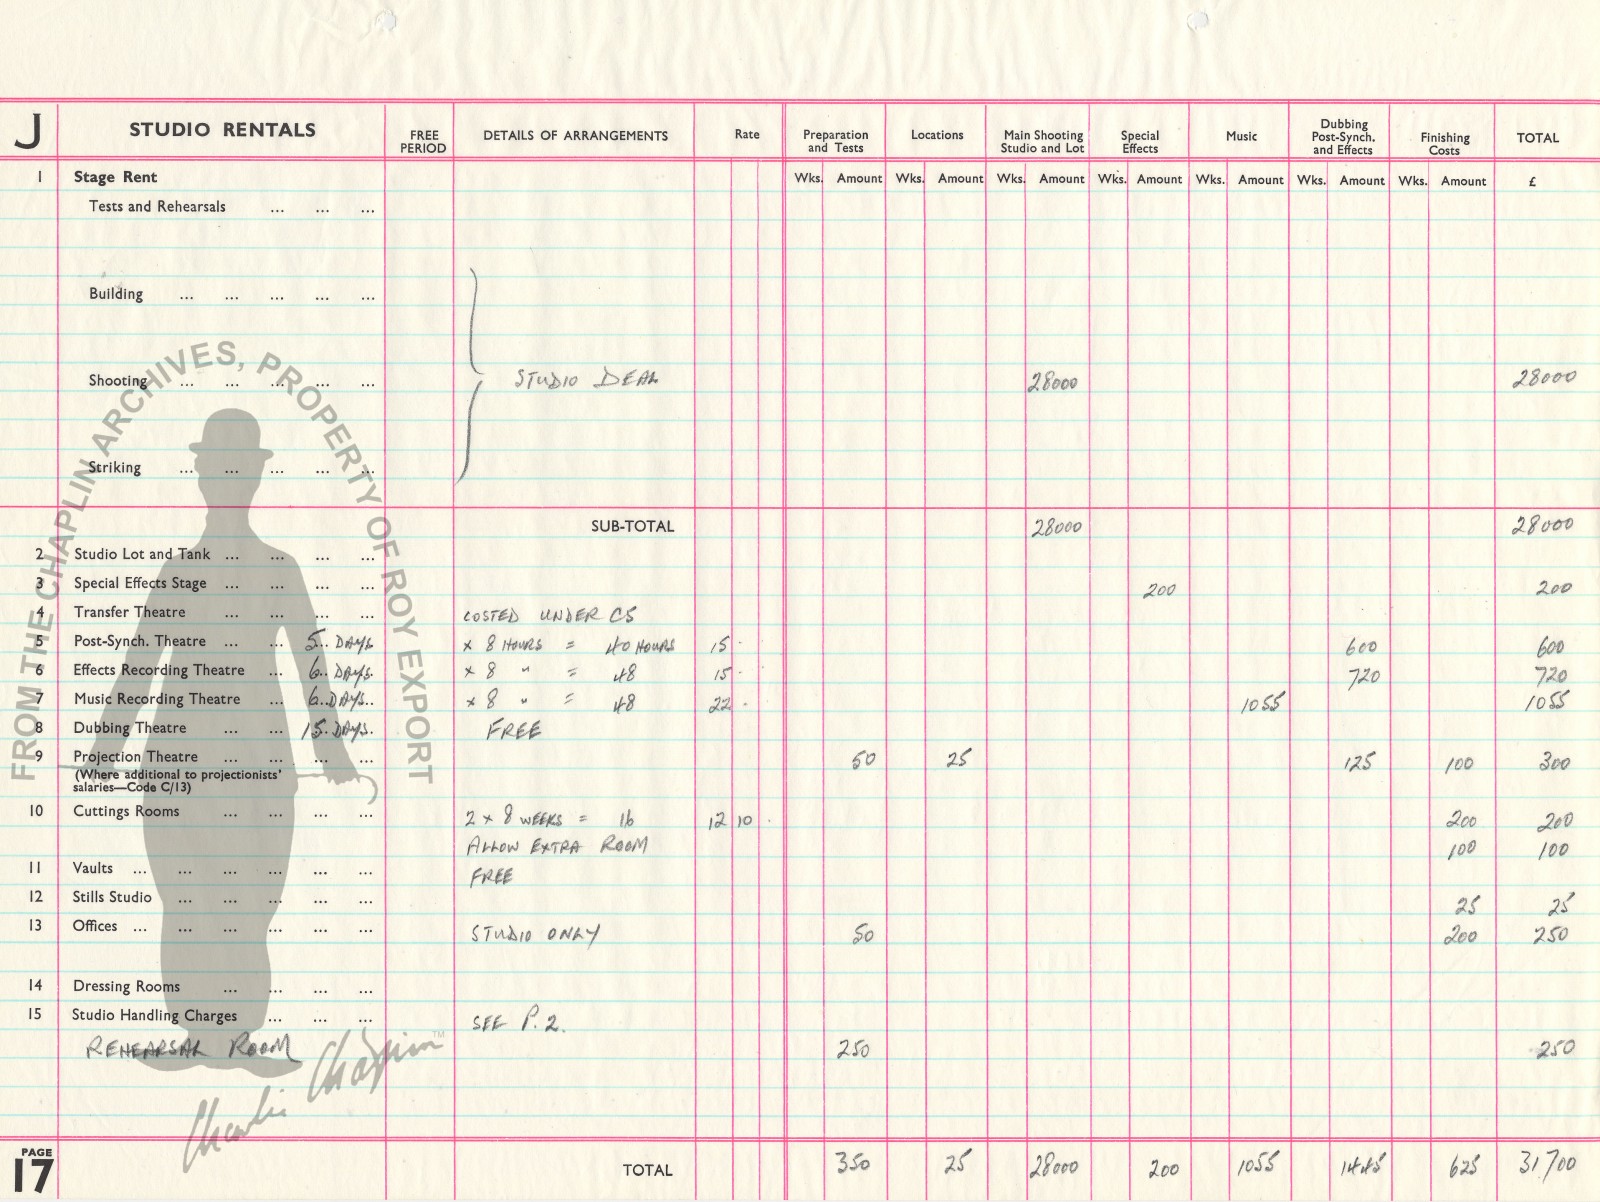 J STUDIO RENTALS FREE PERIOD DETAILS OF ARRANGEMENTS Rate Preparation and Tests Locations Main Shooting Studio and Lot Special Effects Music Dubbing Post-Synch. and Effects Finishing Costs TOTAL
1 Stage Rent Wks. Amount Wks. Amount Wks. Amount Wks. Amount Wks. Amount Wks. Amount Wks. Amount £
Tests and Rehearsals ... ... ...
Building ... ... ... ... ...
Shooting ... ... ... ... ... STUDIO DEAL 28000 28000
Striking ... ... ... ... ...
SUB-TOTAL 28000 28000
2 Studio Lot and Tank ... ... ... ...
3 Special Effects Stage ... ... ... ... 200 200
4 Transfer Theatre ... ... ... ... COSTED UNDER C5
5 Post-Synch. Theatre ... ... 5 DAYS × 8 HOURS = 40 HOURS 15 · 600 600
6 Effects Recording Theatre ... 6 DAYS × 8 " = 48 15 · 720 720
7 Music Recording Theatre ... 6 DAYS × 8 " = 48 22 · 1055 1055
8 Dubbing Theatre ... ... 15 DAYS. FREE
9 Projection Theatre ... ... ... ... 50 25 125 100 300
(Where additional to projectionists'
salaries—Code C/13)
10 Cuttings Rooms ... ... ... ... 2 × 8 WEEKS = 16 12 10 · 200 200
ALLOW EXTRA ROOM 100 100
11 Vaults ... ... ... ... ... ... FREE
12 Stills Studio ... ... ... ... ... 25 25
13 Offices ... ... ... ... ... ... STUDIO ONLY 50 200 250
14 Dressing Rooms ... ... ... ...
15 Studio Handling Charges ... ... ... SEE P. 2.
REHEARSAL ROOM 250 250
PAGE
17 TOTAL 350 25 28000 200 1055 1445 625 31700
FROM THE CHAPLIN ARCHIVES, PROPERTY OF ROY EXPORT
Charlie Chaplin™